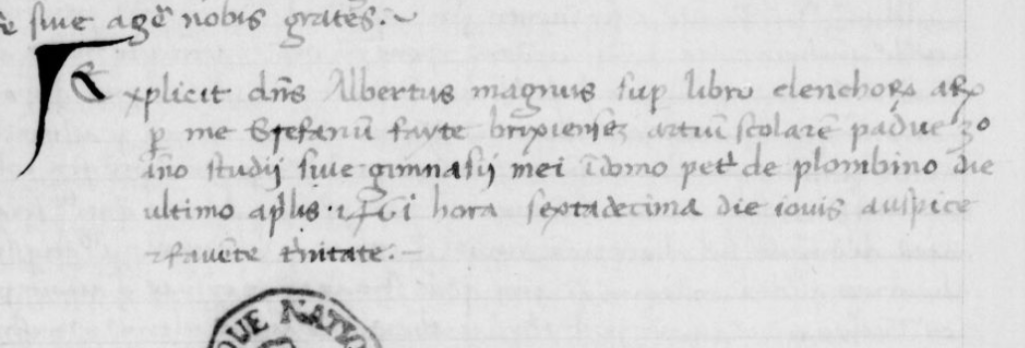 siue agē nobis grates.~
Explicit dn̄s Albertus magnus sup libro elenchorꝝ arꝝ
ꝑ me Stefanū fayte brixiensēz artiū scolarē padue 3o
āno studij siue gimnasij mei ī domo pet̄ de plombino die
ultimo aplis · 1461 hora sextadecima die iouis auspice
fauēte t̄nitate.—
QUE NATU